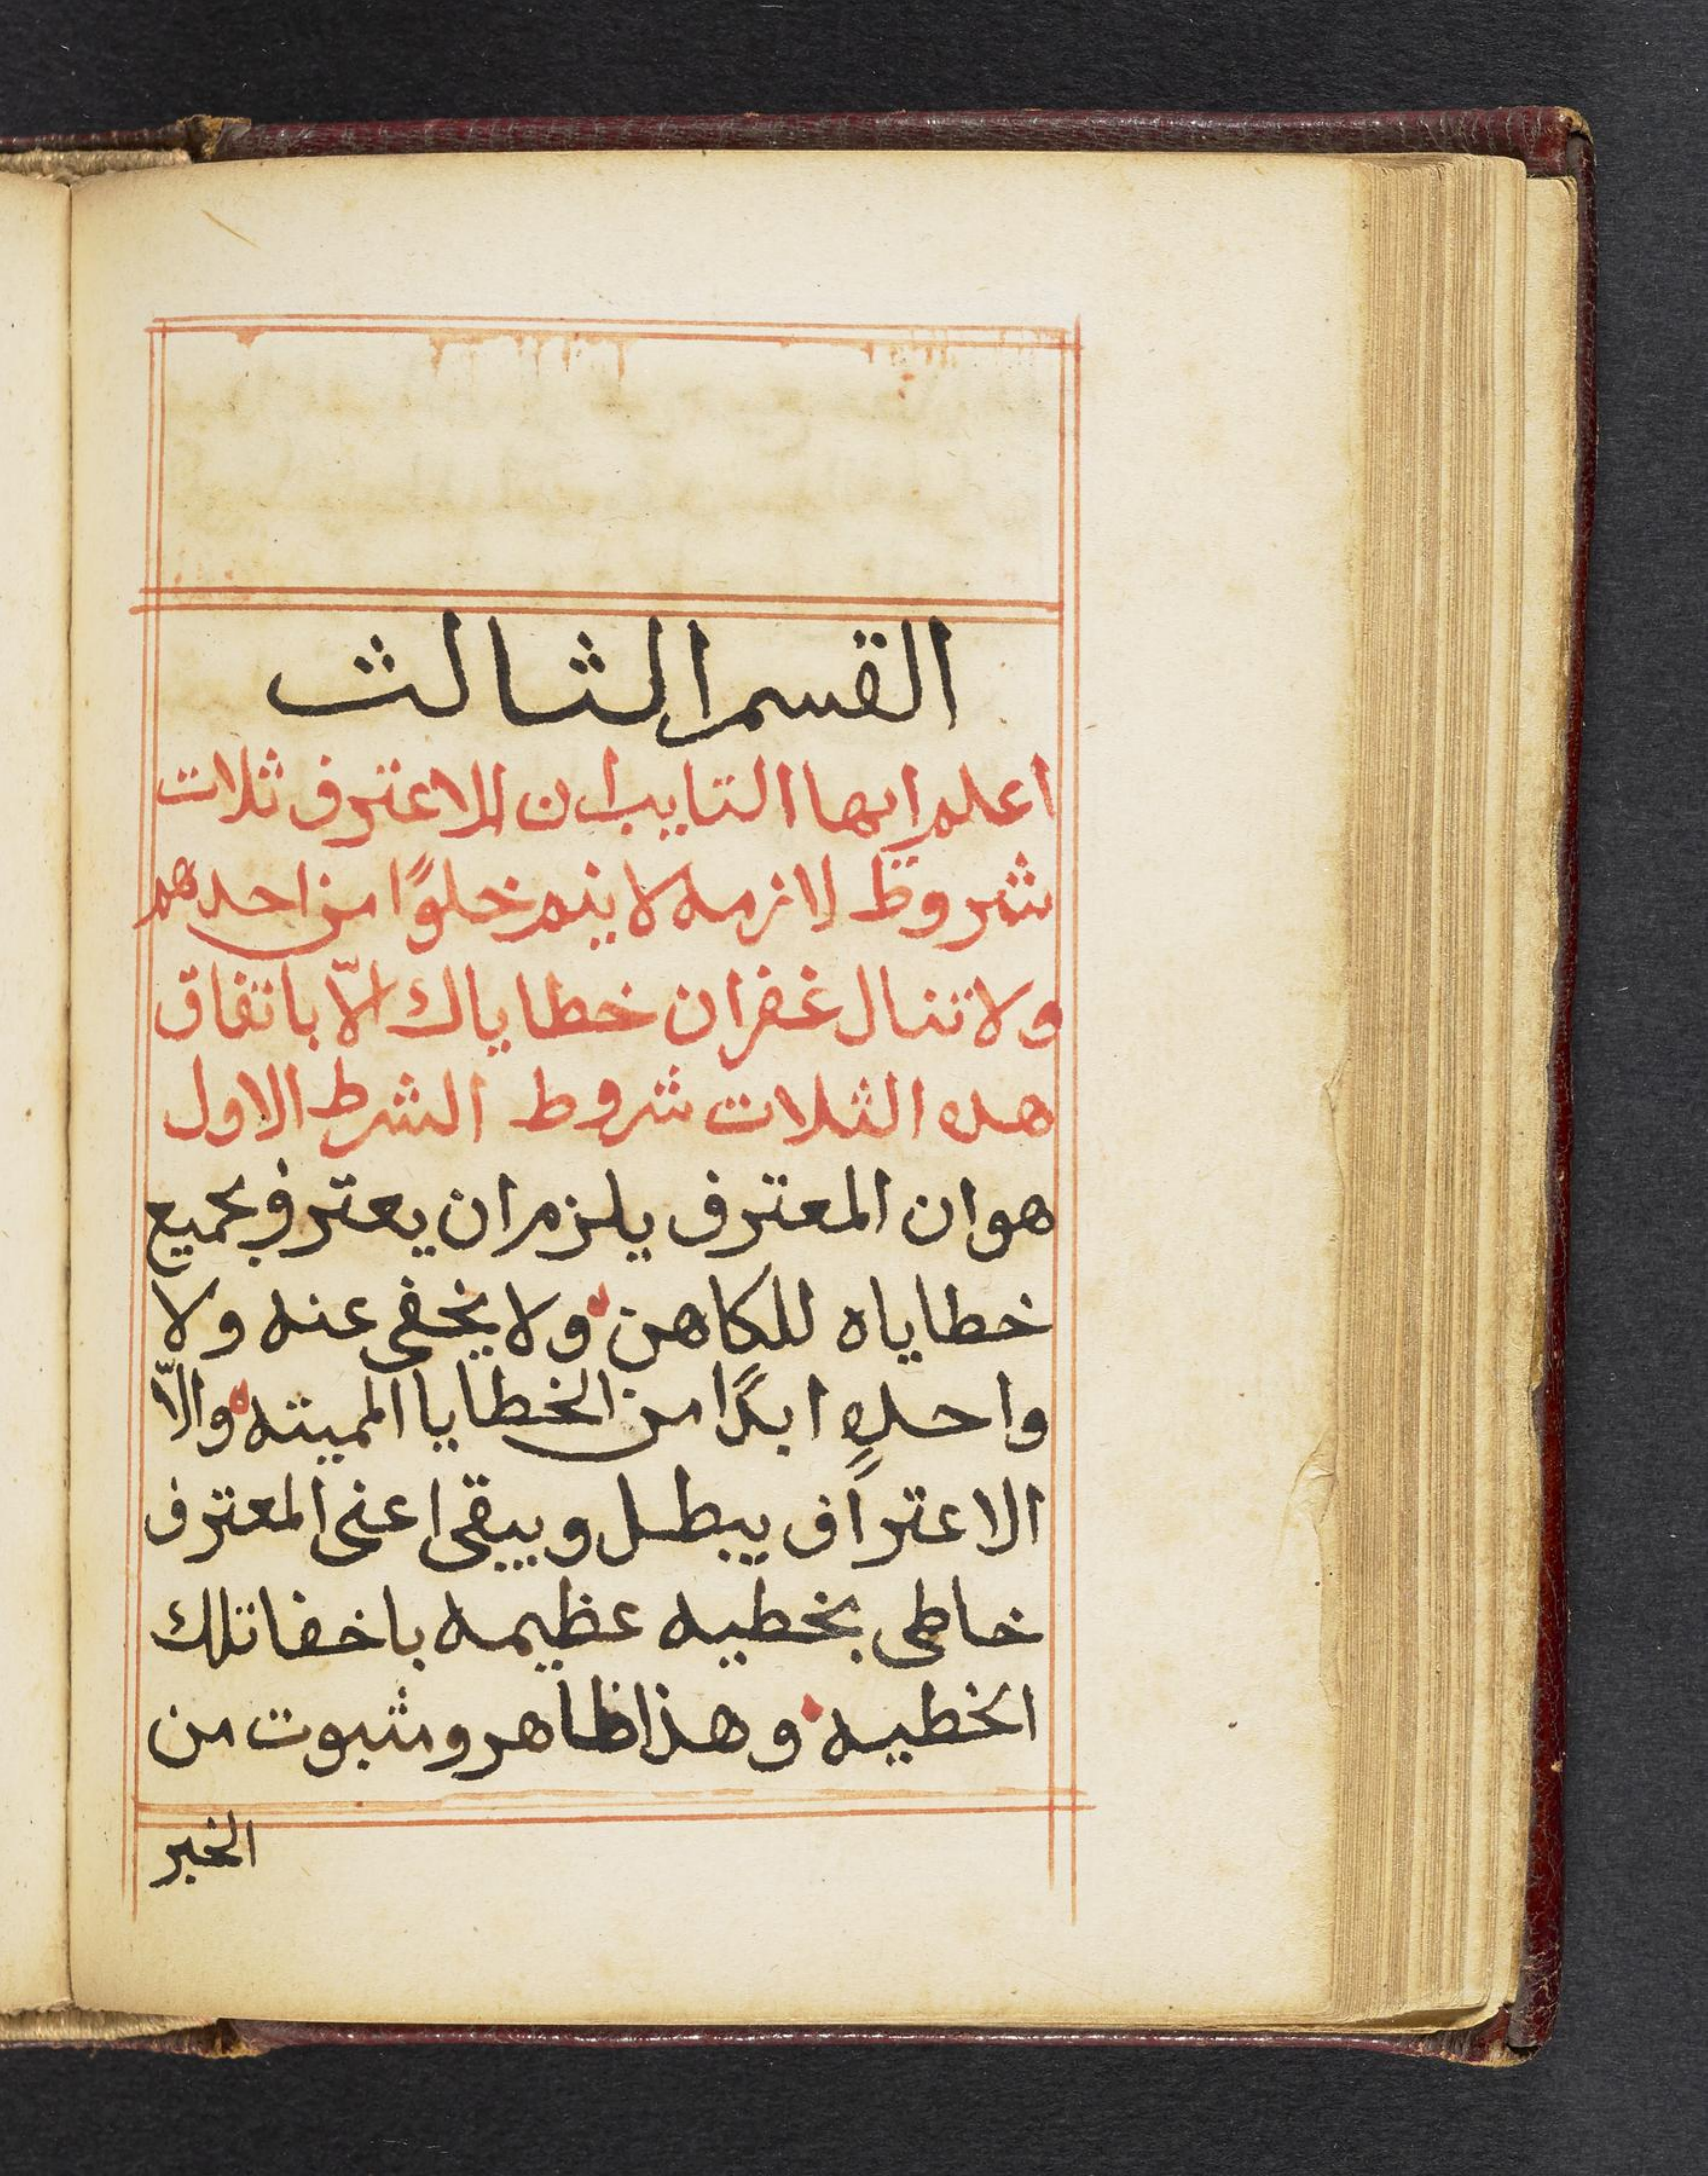 القسم الثالث
اعلم ايها التايب ان للاعترف ثلات
شروط لازمه لا يتم خلوًا من احدهم
ولا تنال غفران خطاياك الّا باتفاق
هده الثلات شروط الشرط الاول
هو ان المعترف يلزم ان يعترف بجميع
خطاياه للكاهن ولا يخفى عنه ولا
واحدهٍ ابدًا من الخطايا المميته والّا
الاعتراف يبطل ويبقى اعنى المعترف
خاطى بخطيه عظيمه باخفا تلك
الخطيه وهذا ظاهر ومثبوت من
الخبر